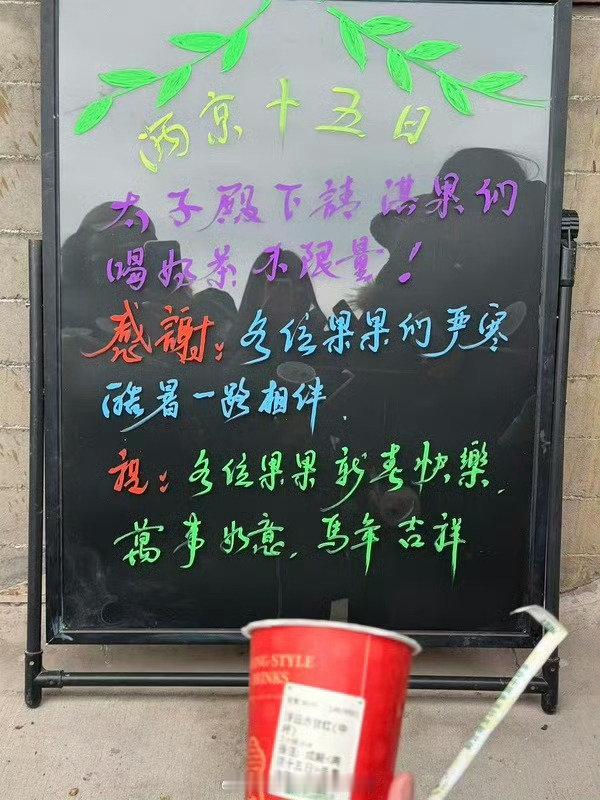 两京十五日
太子殿下請淇果们
喝奶茶不限量！
感謝：各位果果们严寒
酷暑一路相伴.
祝：各位果果新春快樂.
萬事如意.馬年吉祥
NG-STYLE
INKS